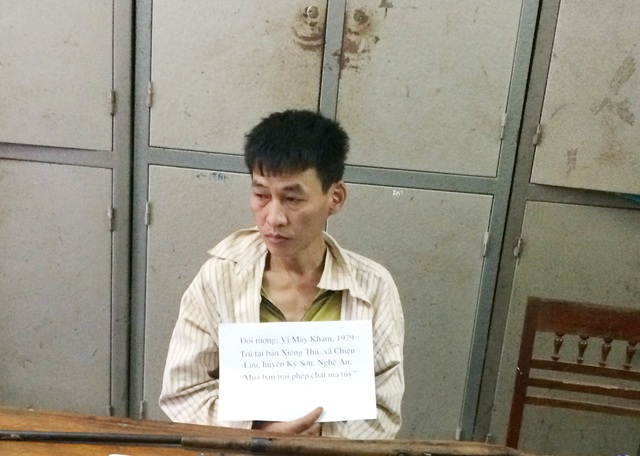 Đối tượng: Vi May Khăm, 1979
Trú tại bản Xiêng Thù, xã Chiêu
Lưu, huyện Kỳ Sơn, Nghệ An.
"Mua bán trái phép chất ma túy"